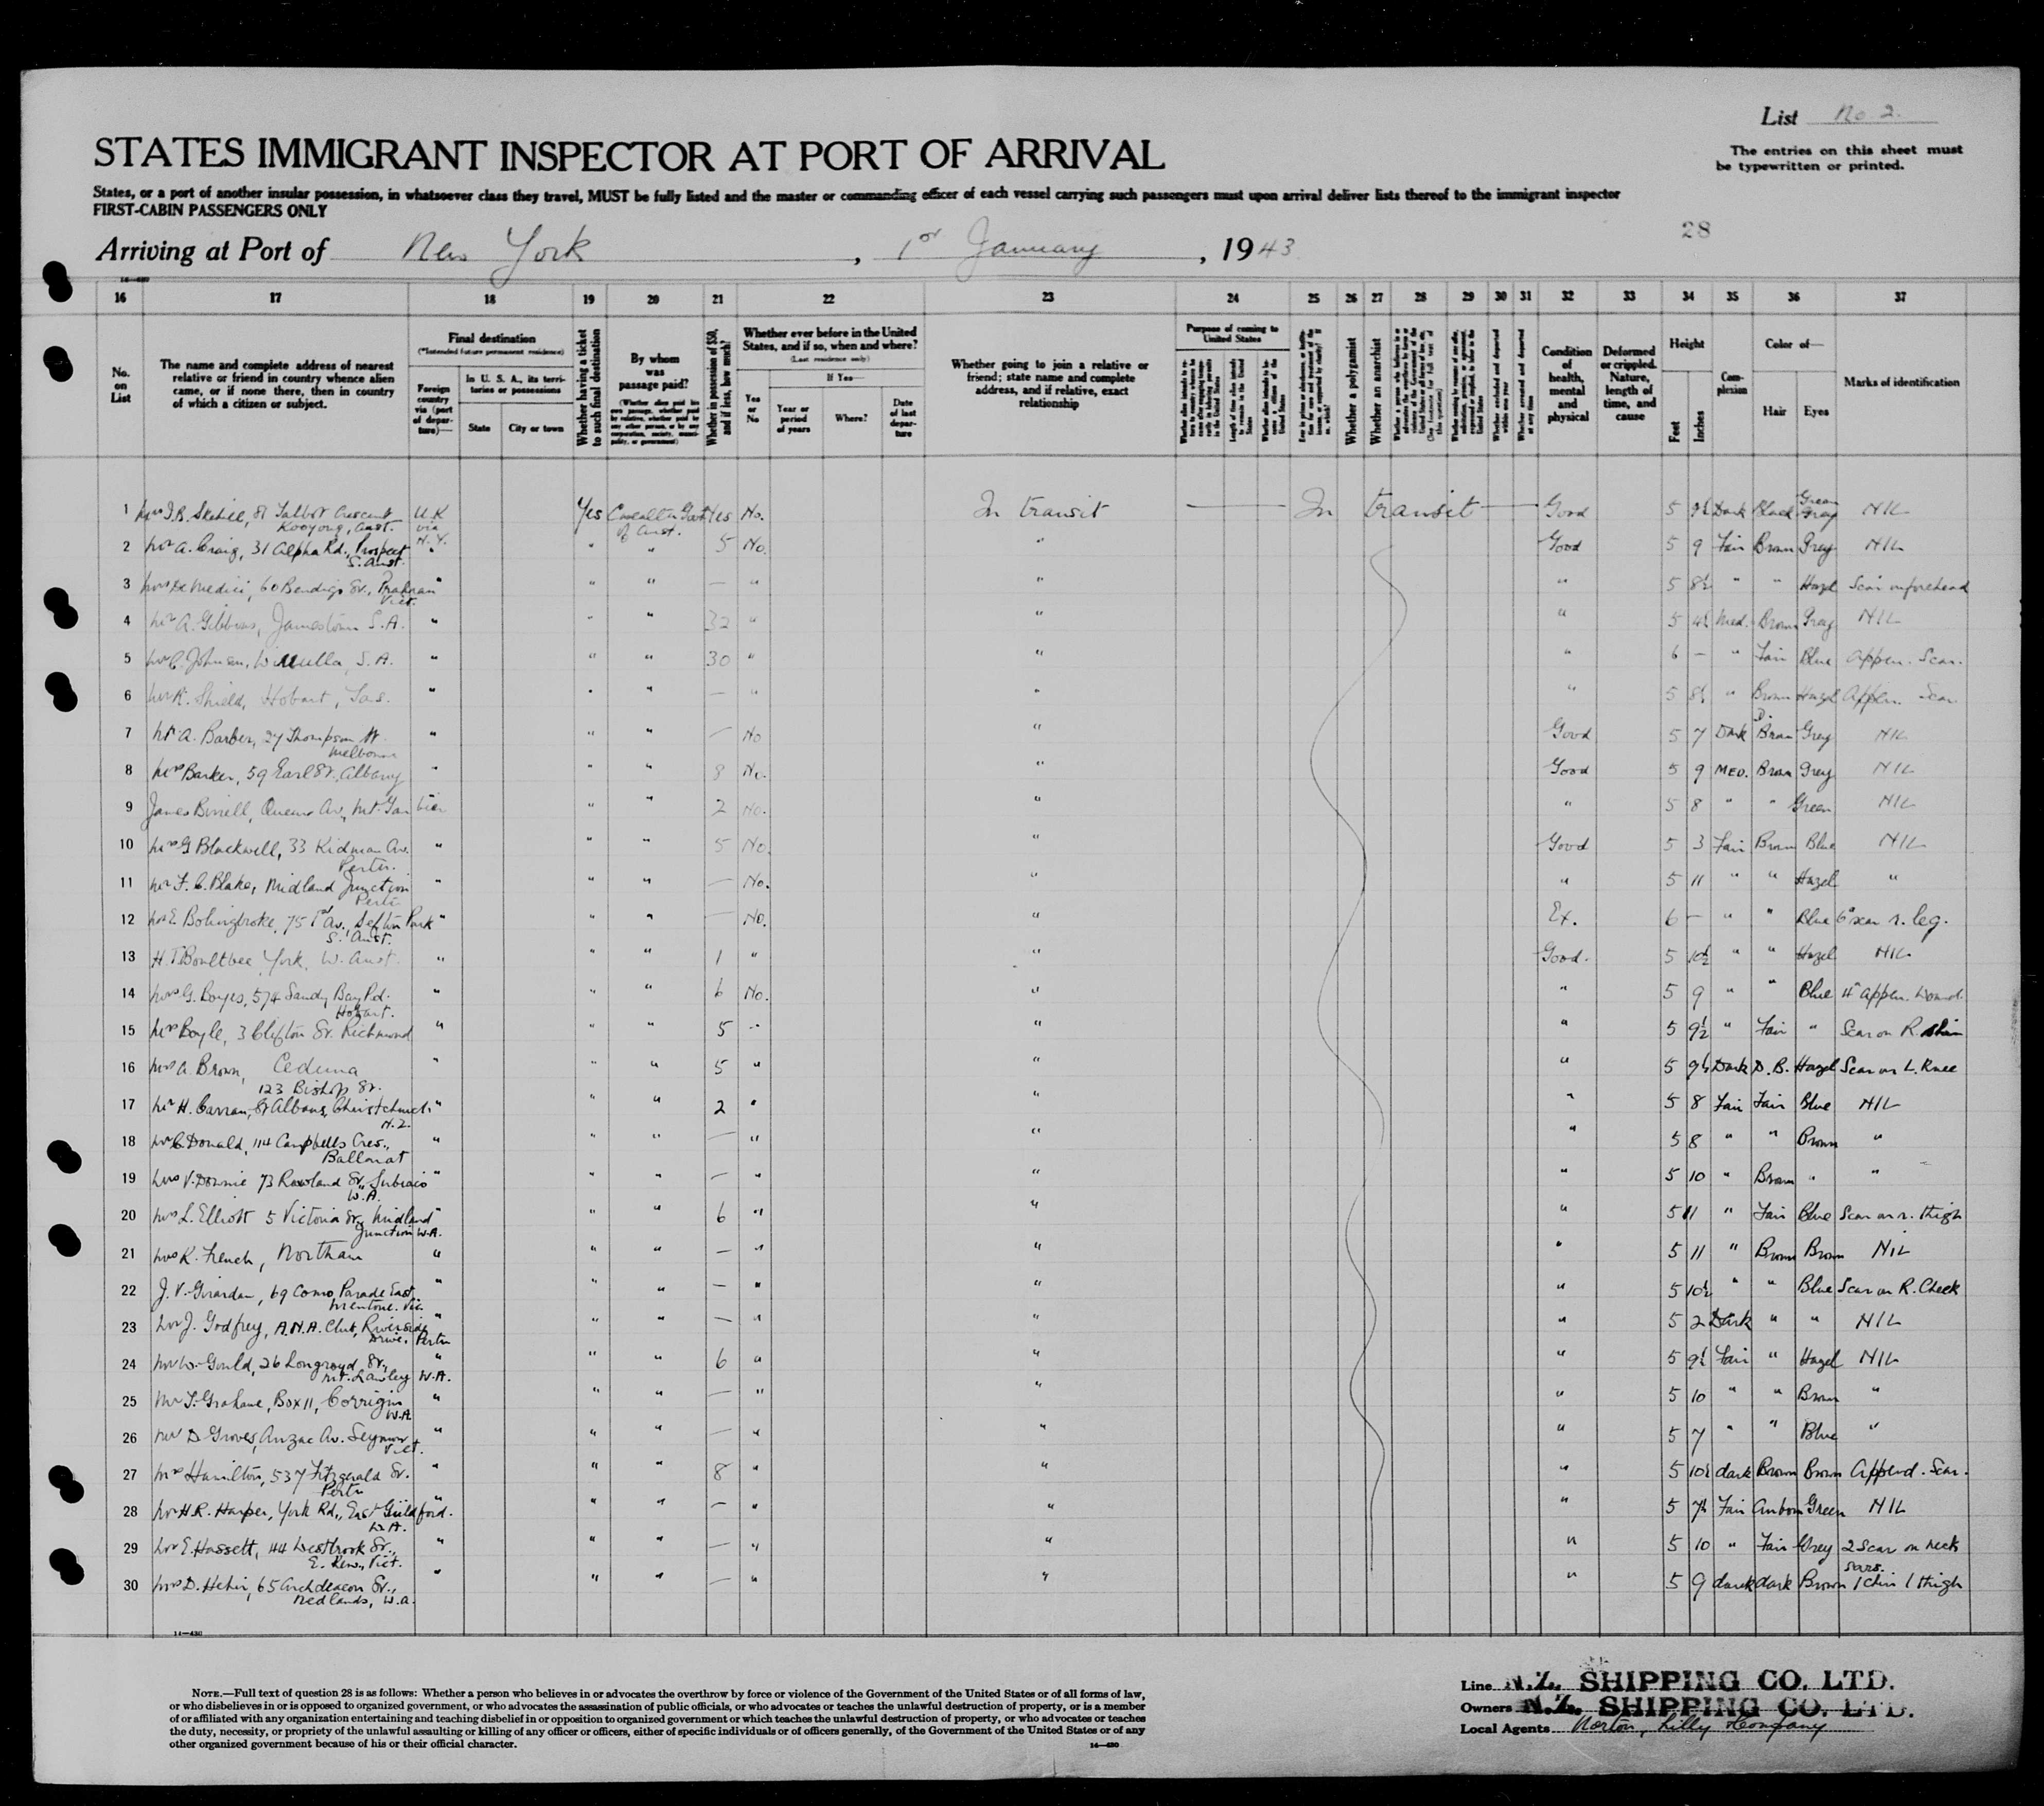 List No 2.
STATES IMMIGRANT INSPECTOR AT PORT OF ARRIVAL
The entries on this sheet must
be typewritten or printed.
States, or a port of another insular possession, in whatsoever class they travel, MUST be fully listed and the master or commanding officer of each vessel carrying such passengers must upon arrival deliver lists thereof to the immigrant inspector
FIRST-CABIN PASSENGERS ONLY
28
Arriving at Port of New York, 1st January, 1943
16 17 18 19 20 21 22 23 24 25 26 27 28 29 30 31 32 33 34 35 36 37
No. on List
The name and complete address of nearest relative or friend in country whence alien came, or if none there, then in country of which a citizen or subject.
Final destination
(*Intended future permanent residence)
Foreign country via (port of departure)—
In U. S. A., its territories or possessions
State
City or town
Whether having a ticket to such final destination
By whom was passage paid?
Whether in possession of $50, and if less, how much?
Whether ever before in the United States, and if so, when and where?
(Last residence only)
Yes or No
If Yes—
Year or period of years
Where?
Date of last departure
Whether going to join a relative or friend; state name and complete address, and if relative, exact relationship
Purpose of coming to United States
Whether a polygamist
Whether an anarchist
Condition of health, mental and physical
Deformed or crippled. Nature, length of time, and cause
Height
Feet
Inches
Complexion
Color of—
Hair
Eyes
Marks of identification
1 Talbot Crescent Kooyong, Aust. U.K. via N.Y. Yes Yes No. In transit In transit Good 5 9½ Dark Black Gray NIL
2 Mr A. Craig, 31 Alpha Rd., Prospect S. Aust. " " " 5 No. " Good 5 9 Fair Brown Grey NIL
3 Mrs De Medici, 60 Bendigo St., Prahran Vict. " " " — " " " 5 8½ " " Hazel Scar on forehead
4 Mr A. Gibbons, Jamestown S.A. " " " 32 " " " 5 4½ Med. Brown Grey NIL
5 S.A. " " " 30 " " " 6 — " Fair Blue Appen. Scar.
6 Mr R. Shield, Hobart, Tas. " " — " " " 5 8½ " Brown Hazel Appen. Scar
7 Mr A. Barber, 27 Thompson St. Melbourne " " " — No " Good 5 7 Dark D. Brown Grey NIL
8 Mrs Barker, 59 Earl St. Albany " " " 8 No. " Good 5 9 MED. Brown Grey NIL
9 James Birrell, Queens Av., Mt. Gambier " " 2 No. " " 5 8 " " Green NIL
10 Mrs G Blackwell, 33 Kidman Av. Perth. " " " 5 No. " Good 5 3 Fair Brown Blue NIL
11 Mr F. C. Blake, Midland Junction Perth " " " — No. " " 5 11 " " Hazel "
12 Mrs E. Bolingbroke, 75 1st Av., Sefton Park S. Aust. " " " — No. " Ex. 6 — " " Blue 6" scar r. leg.
13 H. T. Boultbee York, W. Aust. " " " 1 " " Good. 5 10½ " " Hazel NIL
14 Mrs G. Boyes, 574 Sandy Bay Rd. Hobart. " " 6 No. " " 5 9 " " Blue 4" appen. Wound.
15 Mrs Boyle, 3 Clifton St. Richmond " " " 5 " " " 5 9½ " Fair " Scar on R. shin
16 Mrs A. Brown, Ceduna " " " 5 " " " 5 9½ Dark D. B. Hazel Scar on L. Knee
17 Mr H. Carran, 123 Bishop St. St Albans, Christchurch N.Z. " " " 2 " " " 5 8 Fair Fair Blue NIL
18 Mr C. Donald, 114 Campbells Cres., Ballarat " " " — " " " 5 8 " " Brown "
19 Mrs V. Downie 73 Rowland St., Subiaco W.A. " " " — " " " 5 10 " Brown " "
20 Mrs L. Elliott 5 Victoria St., Midland Junction W.A. " " " 6 " " " 5 11 " Fair Blue Scar on r. thigh
21 Mrs R. French, Northam " " " — " " " 5 11 " Brown Brown NIL
22 J. V. Girardau, 69 Como Parade East, Mentone. Vic. " " " — " " " 5 10½ " " Blue Scar on R. Cheek
23 Mr J. Godfrey, A.N.A. Club, Riverside Drive, Perth " " " — " " " 5 2 Dark " " NIL
24 Mr W. Gould, 26 Longroyd St., Mt. Lawley W.A. " " " 6 " " " 5 9½ Fair " Hazel NIL
25 Mr T. Grahame, Box 11, Corrigin W.A. " " " — " " " 5 10 " " Brown "
26 Mr D Groves, Anzac Av. Seymour Vict. " " " — " " " 5 7 " " Blue "
27 Mrs Hamilton, 537 Fitzgerald St. Perth " " " 8 " " " 5 10½ dark Brown Brown Append. Scar.
28 Mr H.R. Harper, York Rd., East Guildford. W.A. " " " — " " " 5 7½ Fair Auburn Green NIL
29 Mr E. Hassett, 44 Westbrook St., E. Kew, Vict. " " " — " " " 5 10 " Fair Grey 2 Scar on neck
30 65 Archdeacon St., Nedlands, W.A. " " " — " " " 5 9 dark dark Brown scars. 1 chin 1 thigh
14—430
NOTE.—Full text of question 28 is as follows: Whether a person who believes in or advocates the overthrow by force or violence of the Government of the United States or of all forms of law,
or who disbelieves in or is opposed to organized government, or who advocates the assassination of public officials, or who advocates or teaches the unlawful destruction of property, or is a member
of or affiliated with any organization entertaining and teaching disbelief in or opposition to organized government or which teaches the unlawful destruction of property, or who advocates or teaches
the duty, necessity, or propriety of the unlawful assaulting or killing of any officer or officers, either of specific individuals or of officers generally, of the Government of the United States or of any
other organized government because of his or their official character.
14—430
Line N.Z. SHIPPING CO. LTD.
Owners N.Z. SHIPPING CO. LTD.
Local Agents Norton, Lilly & Company